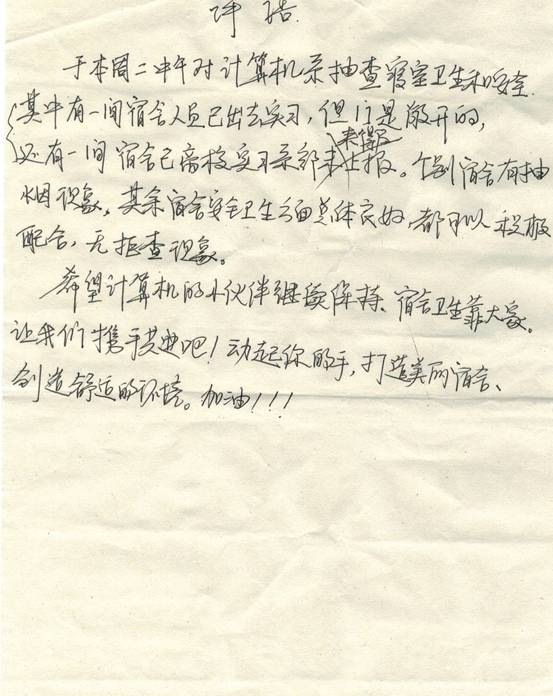 于本周二中午对计算机系抽查寝室卫生和安全.
其中有一间宿舍人员已出去实习,但门是敞开的,
来得及
还有一间宿舍已离校实习系部未上报。个别宿舍有抽
烟现象。其余宿舍安全卫生方面总体良好,都可以积极
配合,无拒查现象。
希望计算机的小伙伴继续保持、宿舍卫生靠大家。
让我们携手共建吧!动起你的手,打造美丽宿舍、
创造舒适的环境。加油!!!